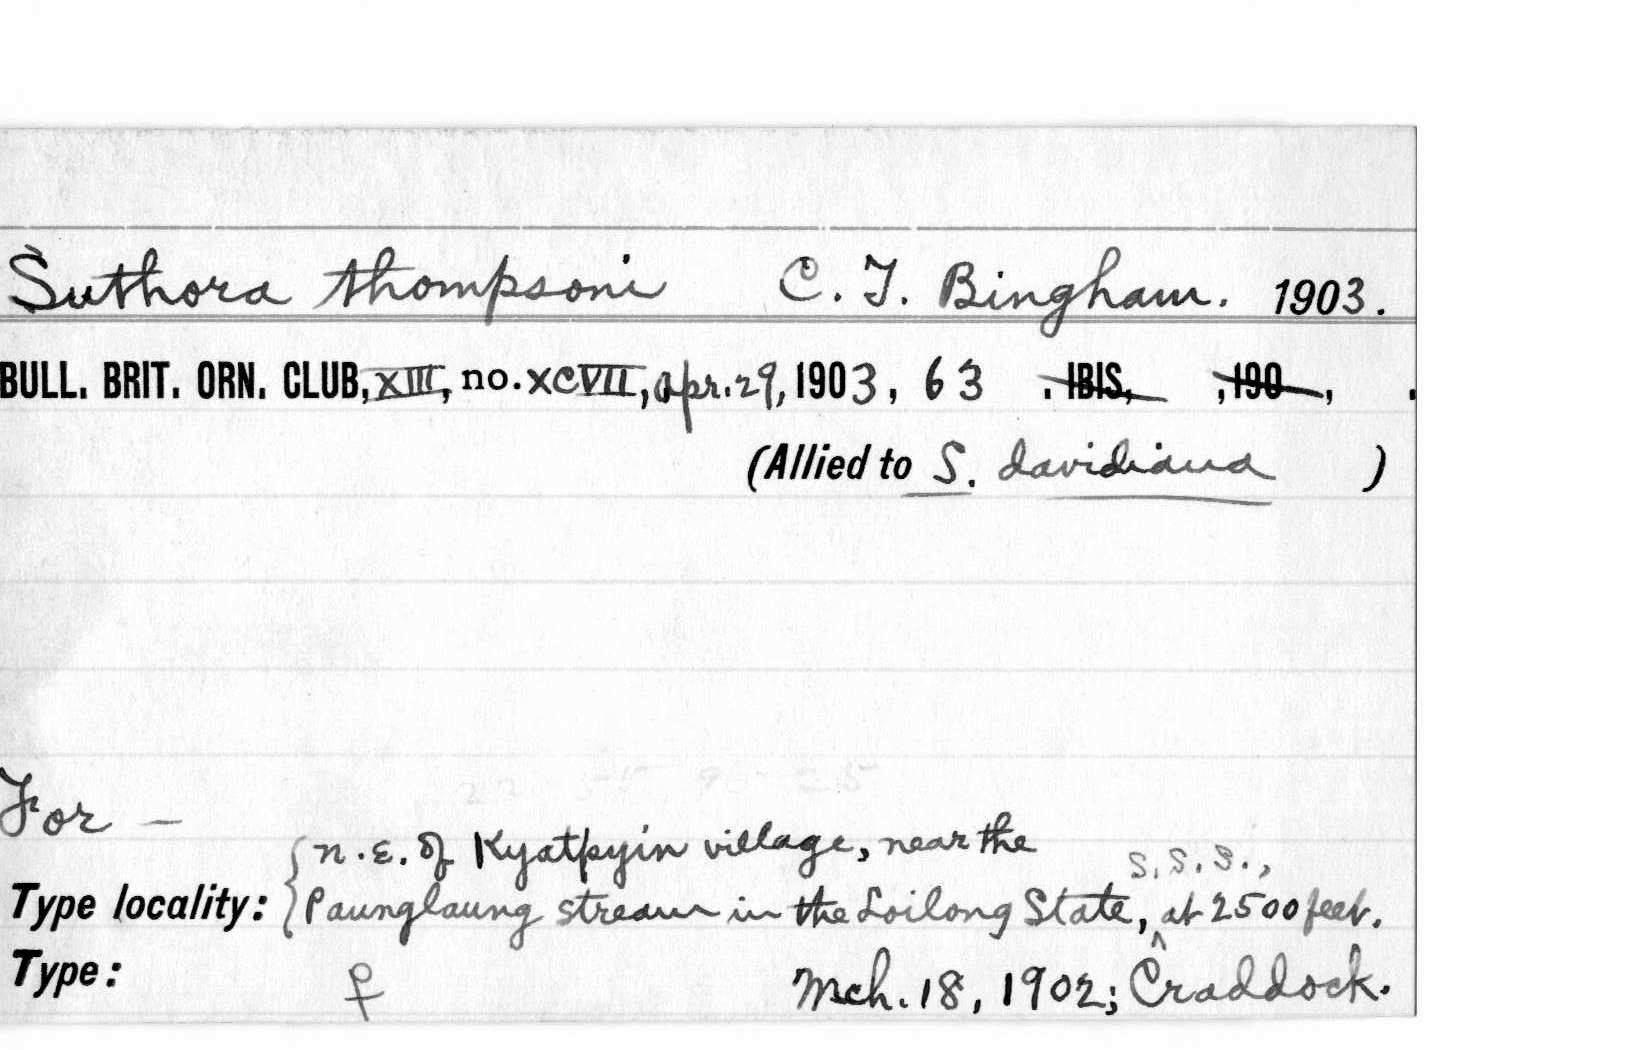 Suthora thompsoni C. T. Bingham. 1903.
BULL. BRIT. ORN. CLUB, XIII, no. XCVII, Apr. 29, 1903, 63 . IBIS, , 190 , .
(Allied to S. davidiana )
For —
n.E. of Kyatpyin village, near the
S.S.S.,
Type locality: Paunglaung stream in the Loilong State, at 2500 feet.
Type: ♀ Mch. 18, 1902; Craddock.